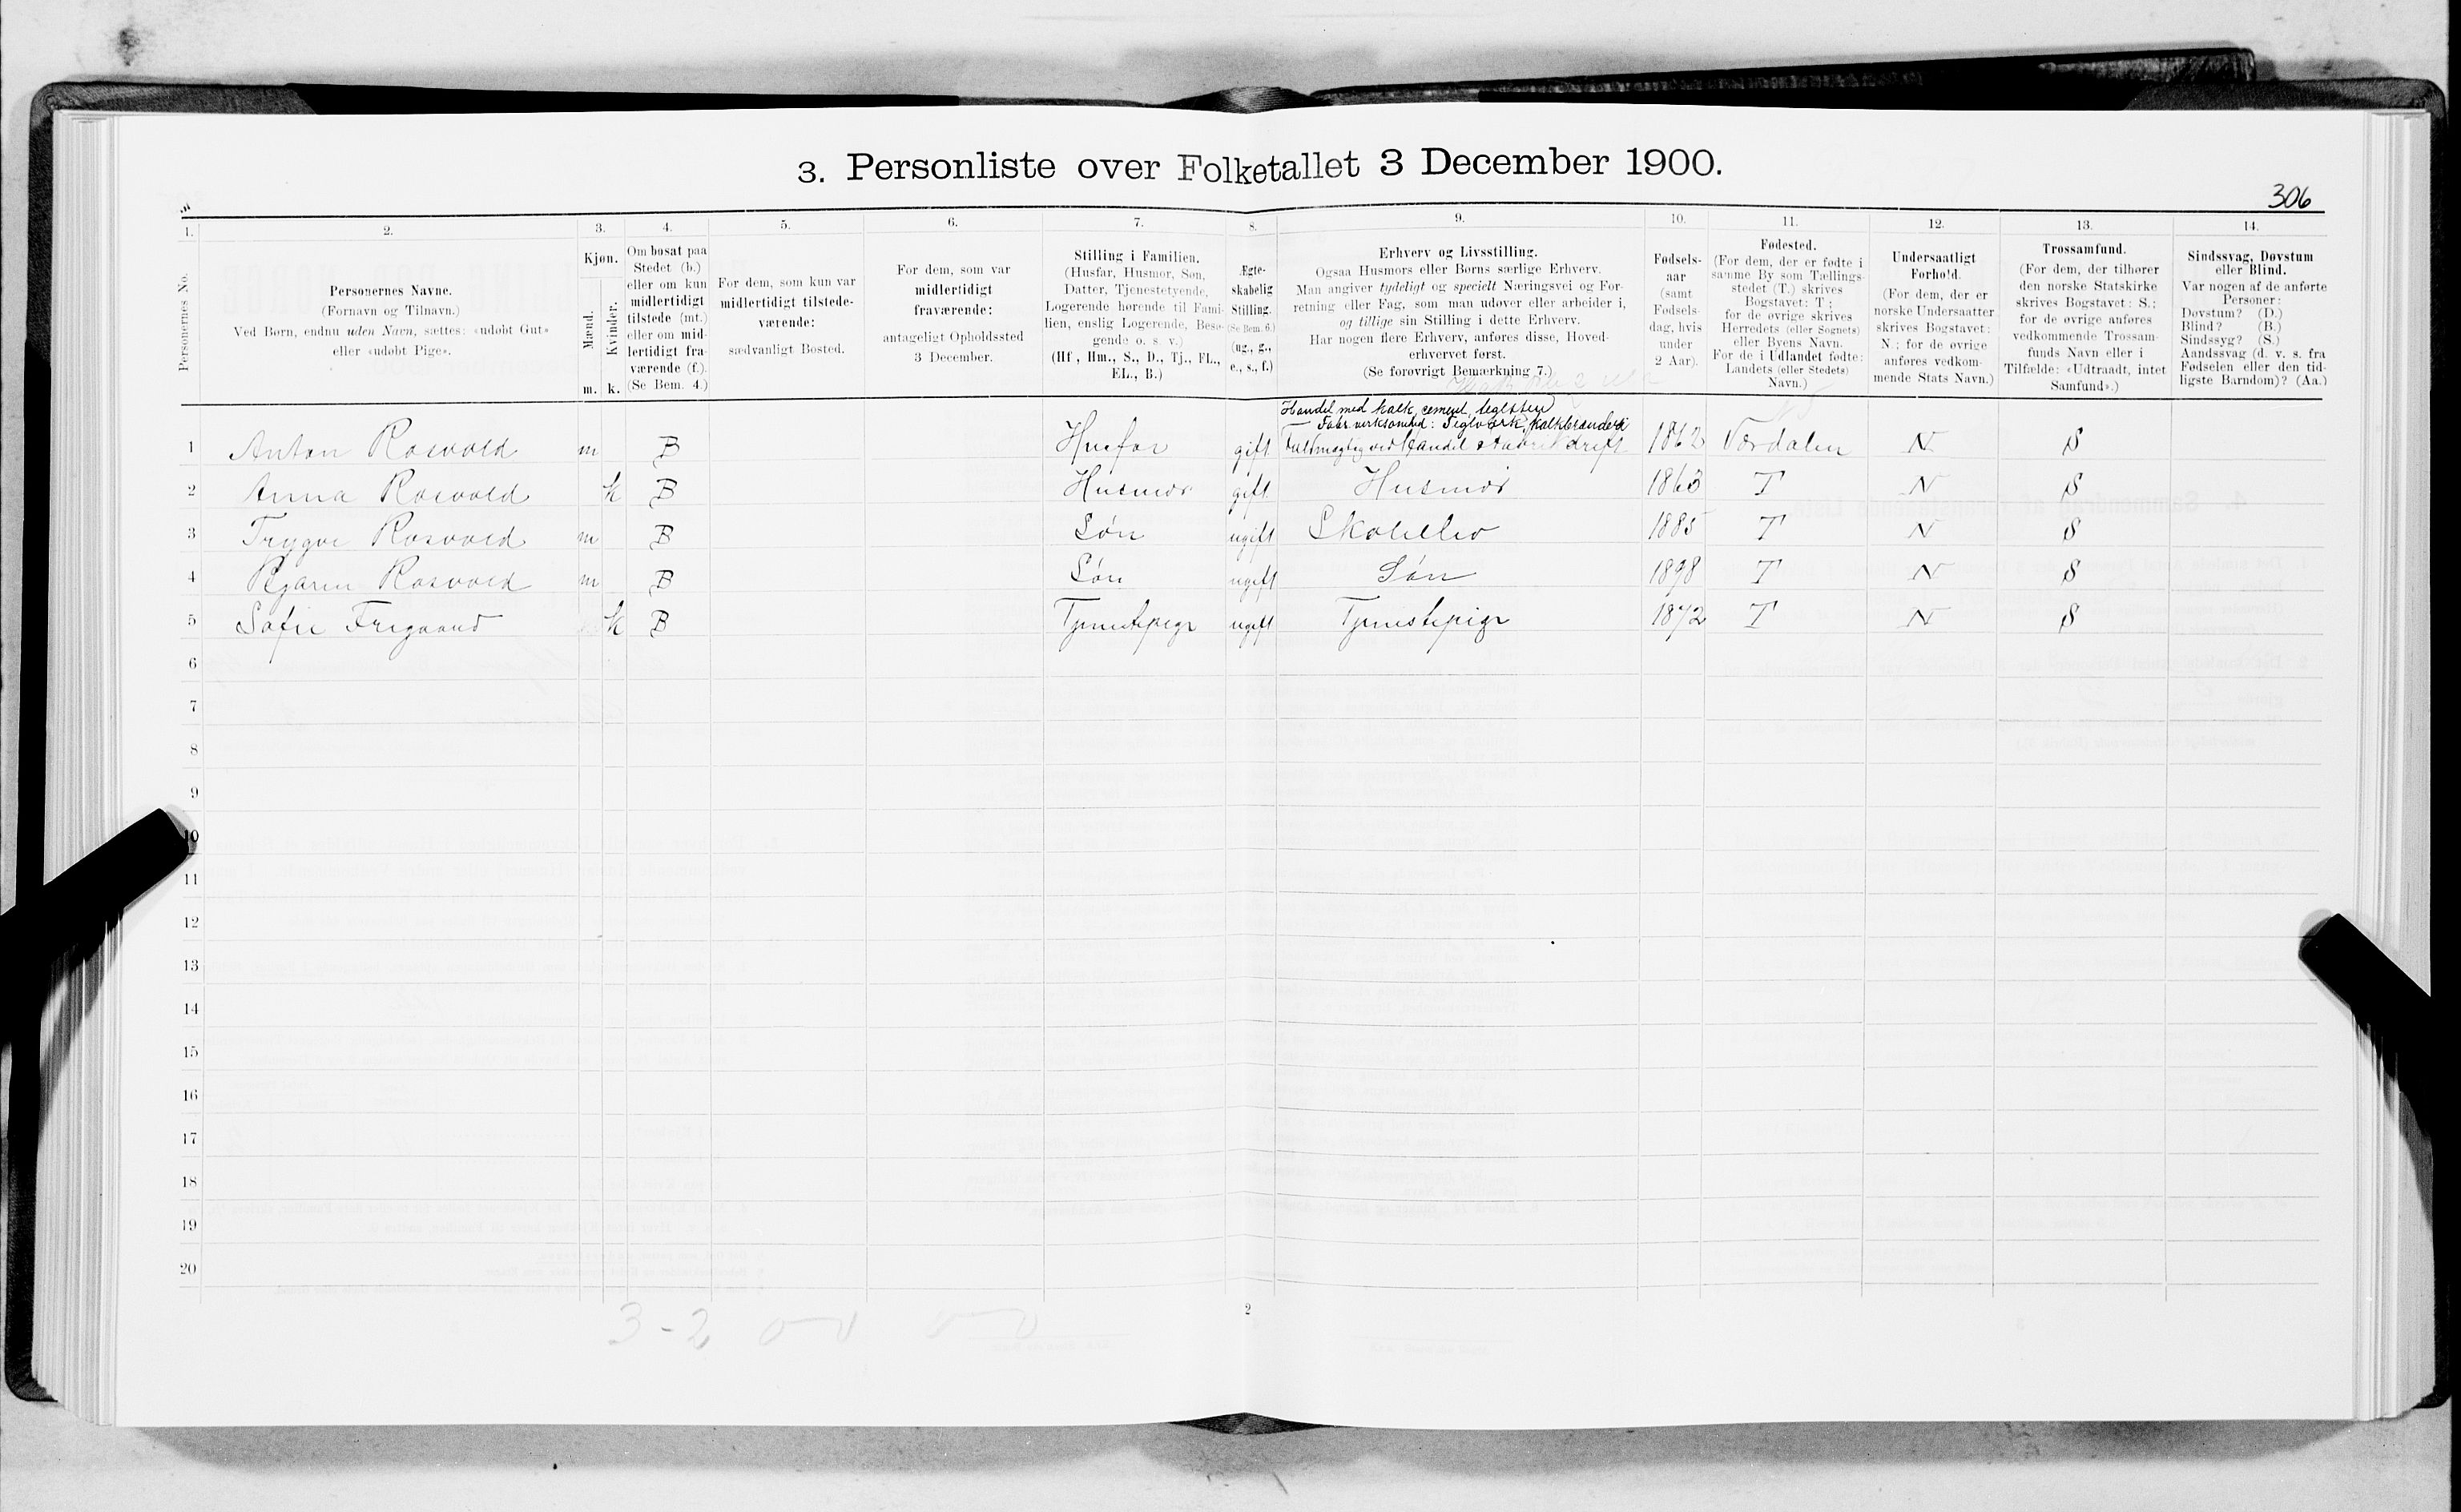 3. Personliste over Folketallet 3 December 1900.
306
1. 2. 3. 4. 5. 6. 7. 8. 9. 10. 11. 12. 13. 14.
Personernes No.
Personernes Navne.
(Fornavn og Tilnavn.)
Ved Børn, endnu uden Navn, sættes: «udøbt Gut»
eller «udøbt Pige».
Kjøn.
Mænd.
Kvinder.
m. k.
Om bosat paa
Stedet (b.)
eller om kun
midlertidigt
tilstede (mt.)
eller om mid-
lertidigt fra-
værende (f.).
(Se Bem. 4.)
For dem, som kun var
midlertidigt tilstede-
værende:
sædvanligt Bosted.
For dem, som var
midlertidigt
fraværende:
antageligt Opholdssted
3 December.
Stilling i Familien.
(Husfar, Husmor, Søn,
Datter, Tjenestetyende,
Logerende hørende til Fami-
lien, enslig Logerende, Besø-
gende o. s. v.)
(Hf., Hm., S., D., Tj., FL.,
EL., B.)
Ægte-
skabelig
Stilling.
(Se Bem. 6.)
(ug., g.,
e., s., f.)
Erhverv og Livsstilling.
Ogsaa Husmors eller Børns særlige Erhverv.
Man angiver tydeligt og specielt Næringsvei og For-
retning eller Fag, som man udøver eller arbeider i,
og tillige sin Stilling i dette Erhverv.
Har nogen flere Erhverv, anføres disse, Hoved-
erhvervet først.
(Se forøvrigt Bemærkning 7.)
Fødsels-
aar
(samt
Fødsels-
dag, hvis
under
2 Aar).
Fødested.
(For dem, der er fødte i
samme By som Tællings-
stedet (T.) skrives
Bogstavet: T;
for de øvrige skrives
Herredets (eller Sognets)
eller Byens Navn.
For de i Udlandet fødte:
Landets (eller Stedets)
Navn.)
Undersaatligt
Forhold.
(For dem, der er
norske Undersaatter
skrives Bogstavet:
N.; for de øvrige
anføres vedkom-
mende Stats Navn.)
Trossamfund.
(For dem, der tilhører
den norske Statskirke
skrives Bogstavet: S.;
for de øvrige anføres
vedkommende Trossam-
funds Navn eller i
Tilfælde: «Udtraadt, intet
Samfund».)
Sindssvag, Døvstum
eller Blind.
Var nogen af de anførte
Personer:
Døvstum? (D.)
Blind? (B.)
Sindssyg? (S.)
Aandssvag (d. v. s. fra
Fødselen eller den tid-
ligste Barndom)? (Aa.)
Handel med kalk, cement, teglsten
Fabr. virksomhed: Teglværk, kalkbrænderi
1 Anton Rosvold m B Husfar gift Fuldmægtig ved Handel & Fabrikdrift 1862 Værdalen N S
2 Anna Rosvold k B Husmor gift Husmor 1863 T N S
3 Trygve Rosvold m B Søn ugift Skoleelev 1885 T N S
4 Bjarne Rosvold m B Søn ugift Søn 1898 T N S
5 Sofie Fregaard k B Tjenestepige ugift Tjenestepige 1872 T N S
6
7
8
9
10
11
12
13
14
15
16
17
18
19
20
3-2
2